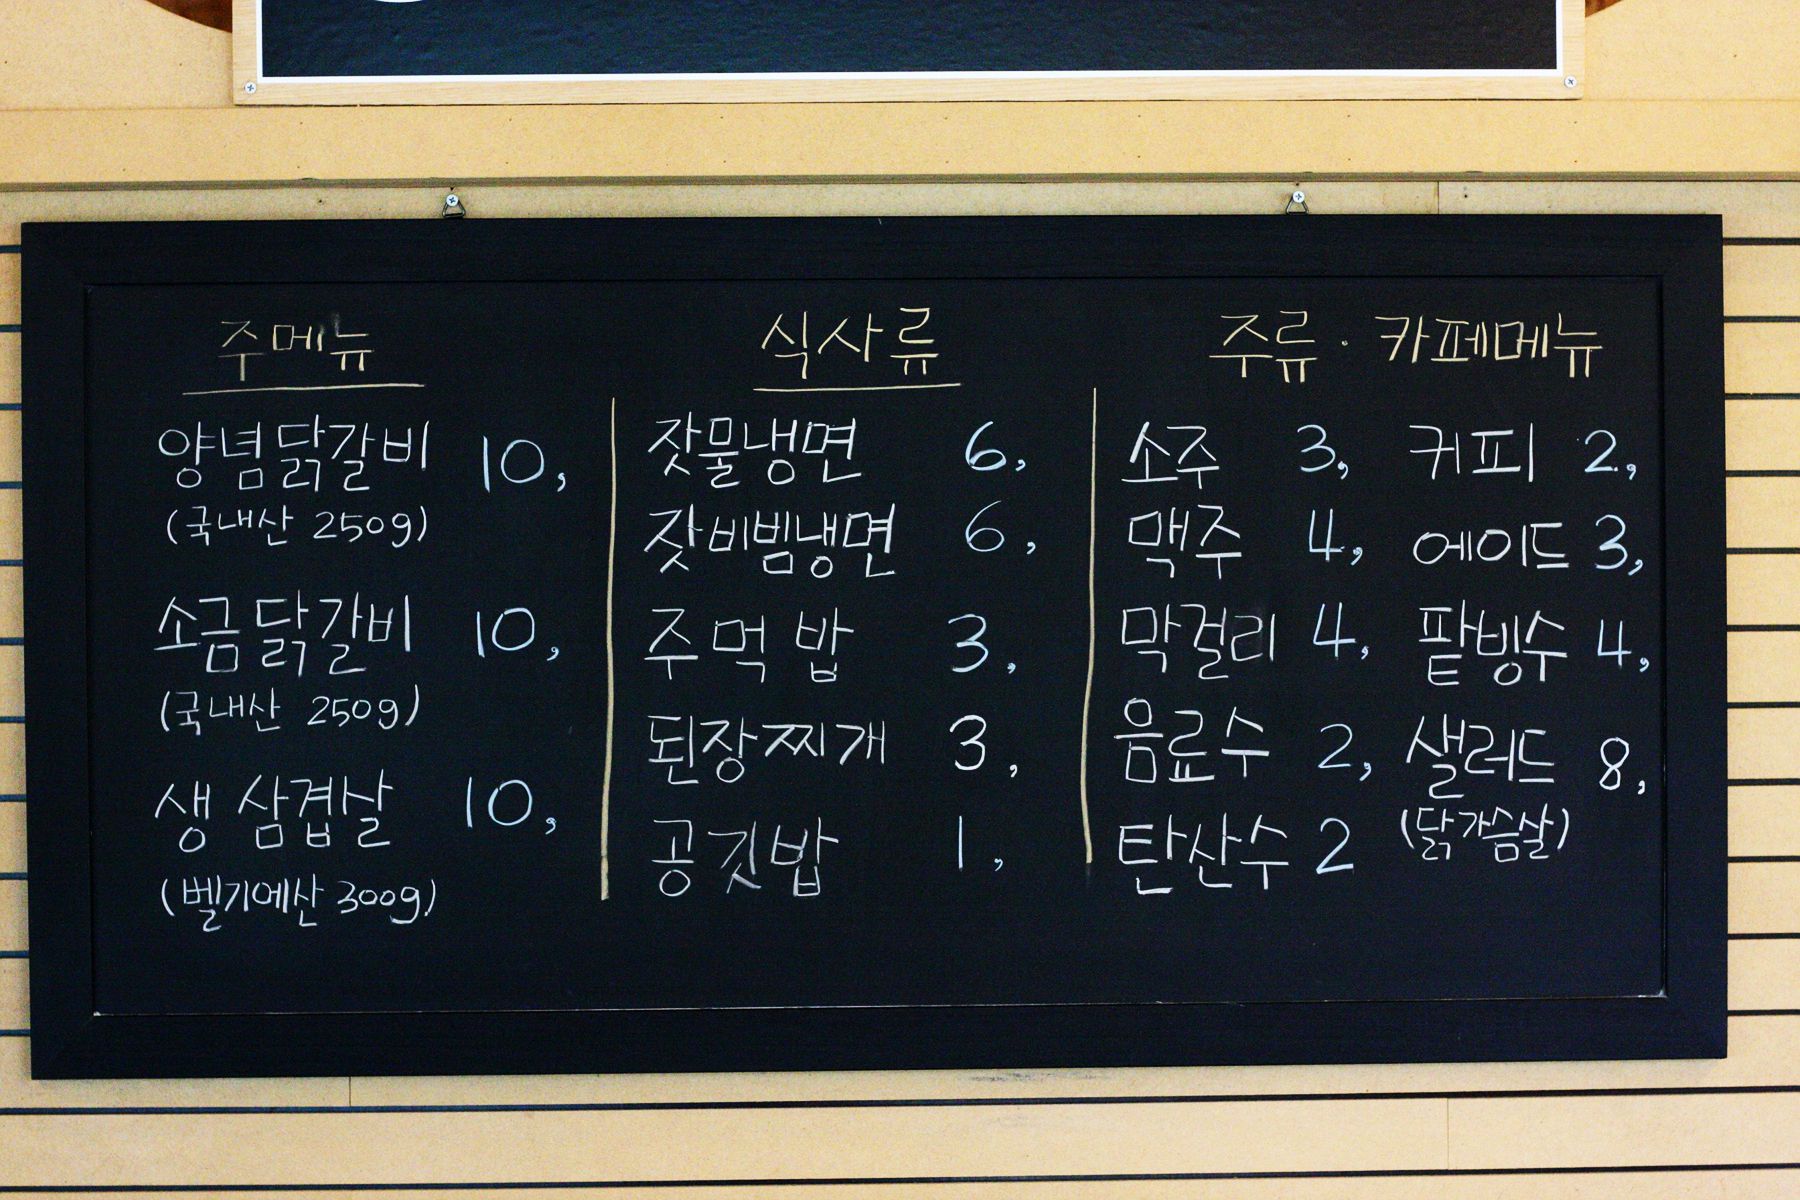 주메뉴
양념닭갈비 10,
(국내산 250g)
소금닭갈비 10,
(국내산 250g)
생삼겹살 10,
(벨기에산 300g)
식사류
잣물냉면 6,
잣비빔냉면 6,
주먹밥 3,
된장찌개 3,
공깃밥 1,
주류·카페메뉴
소주 3, 커피 2,
맥주 4, 에이드 3,
막걸리 4, 팥빙수 4,
음료수 2, 샐러드 8,
탄산수 2 (닭가슴살)